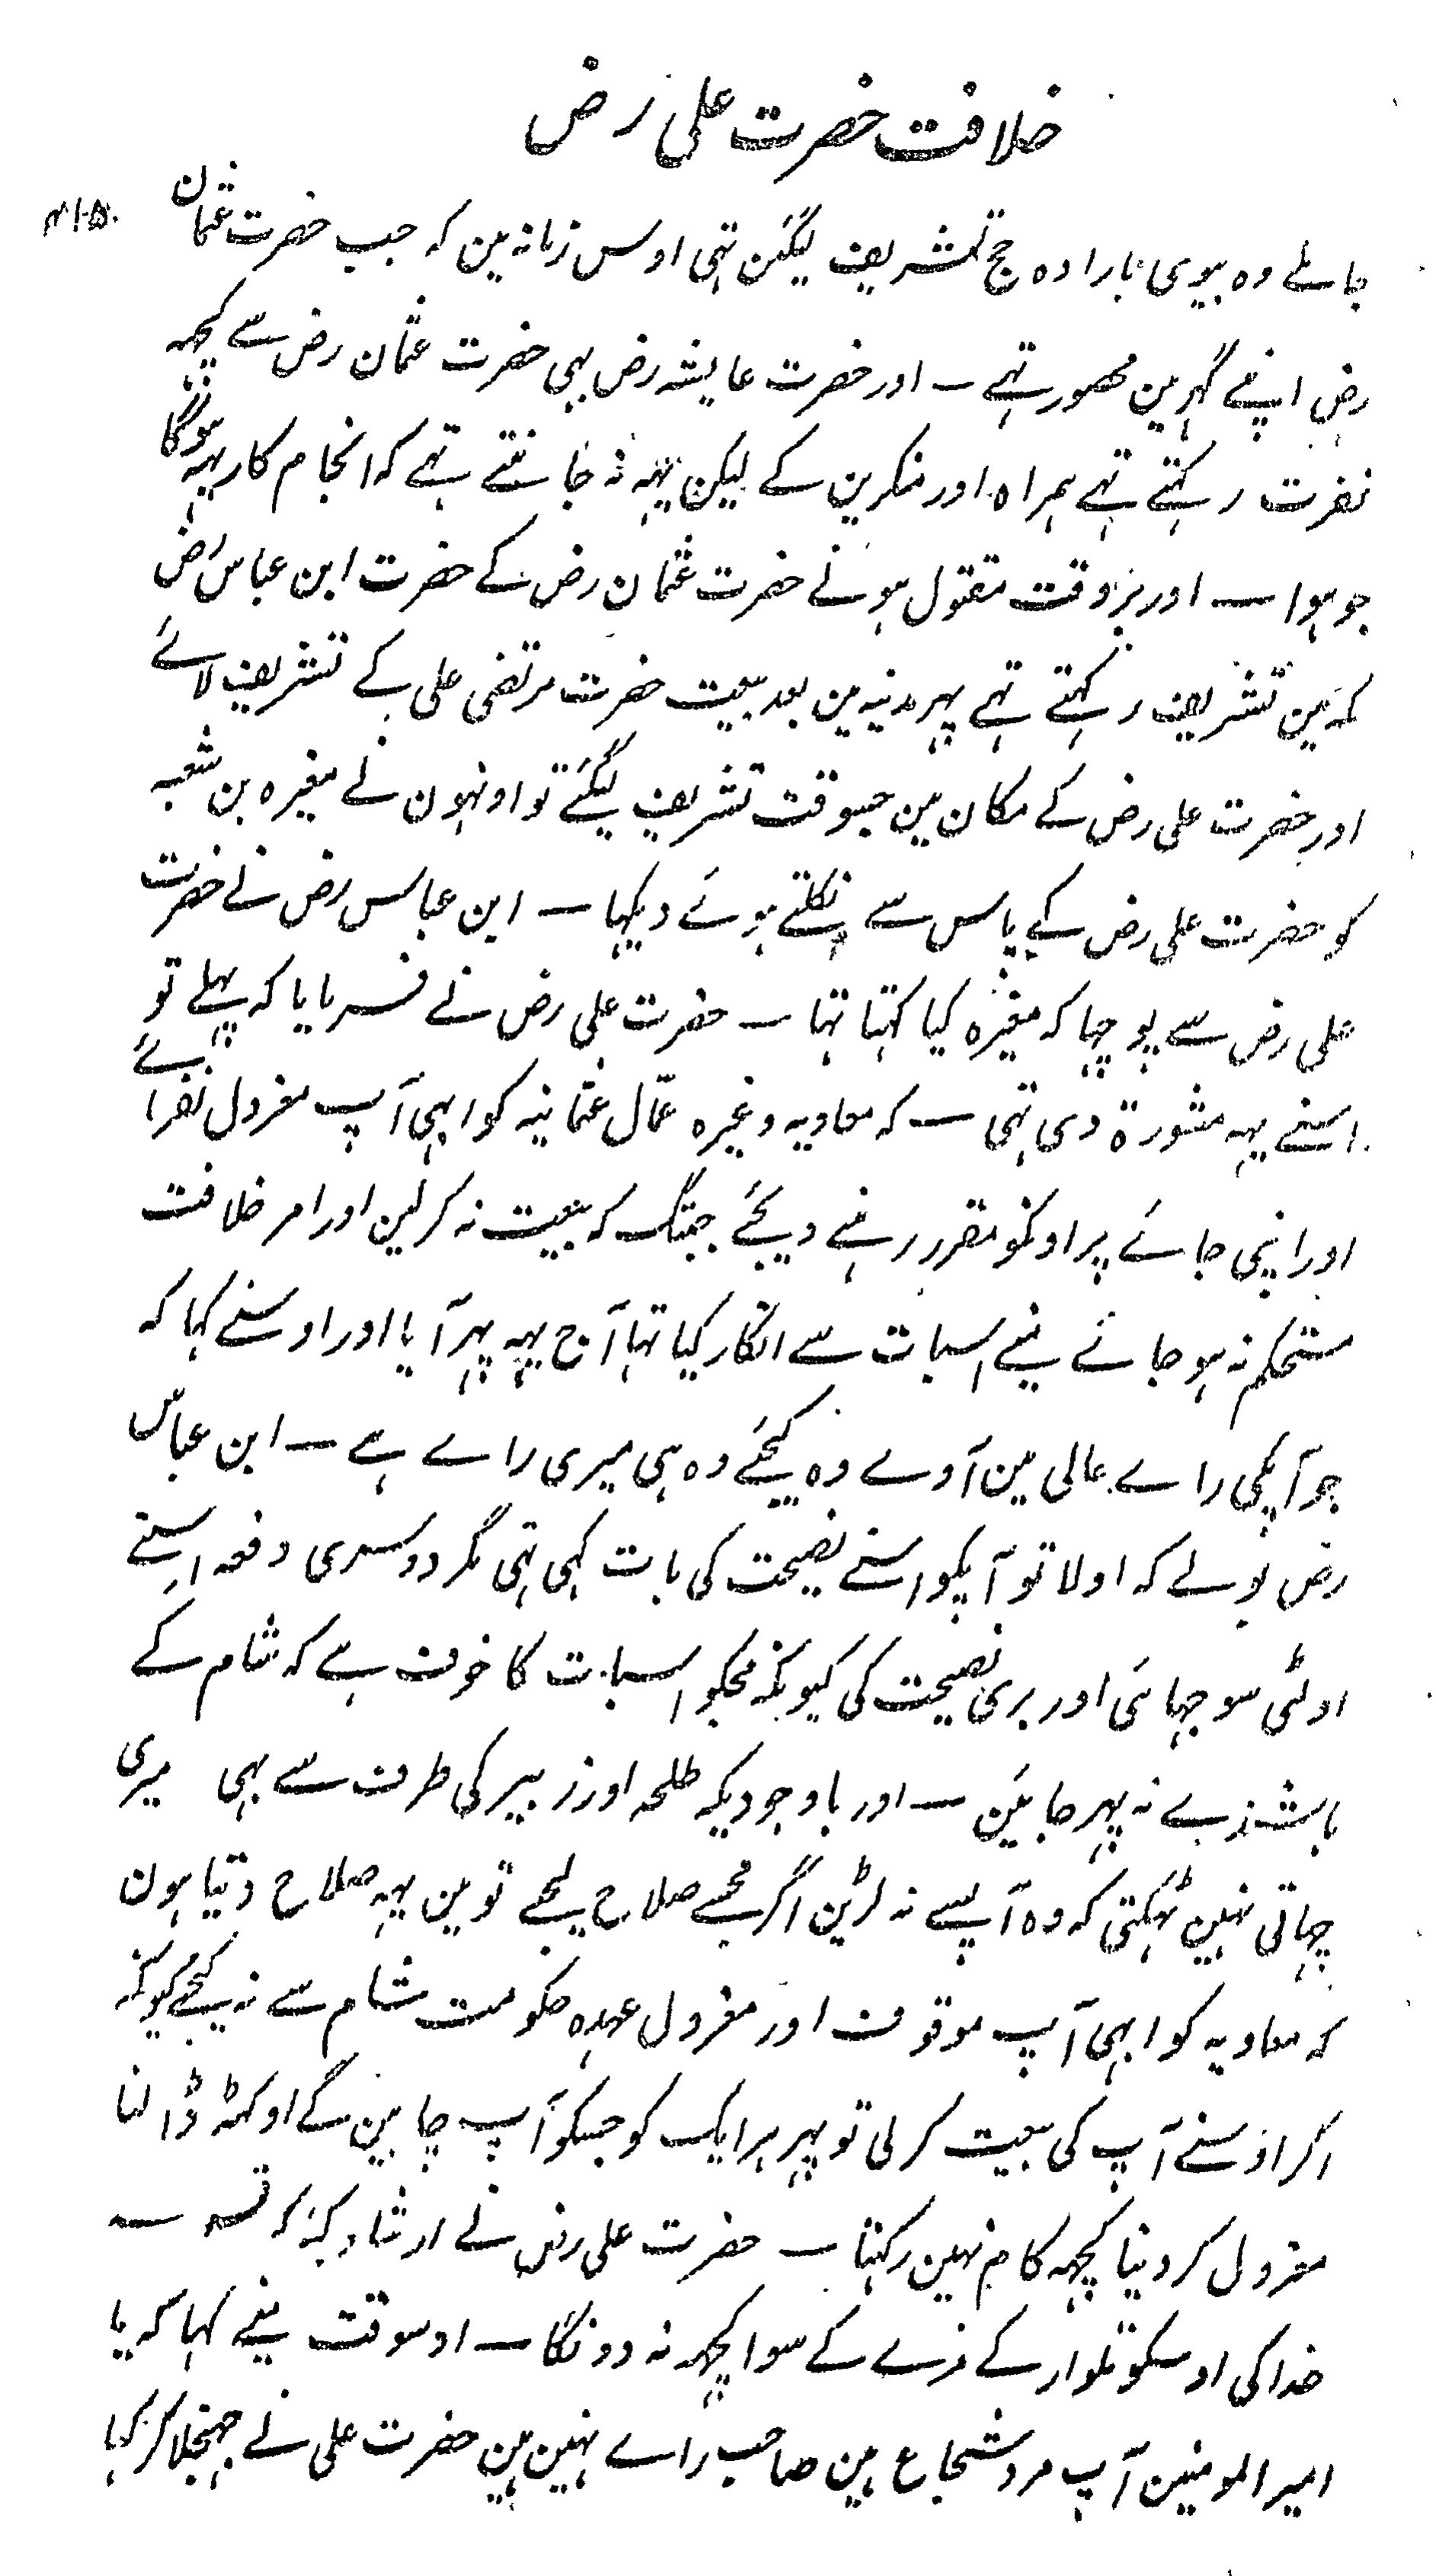 خلافت حضرت علی رض
جاملے وہ بیوی بارادہ حج تشریف لیگئن تہی اوس زمانہ مین کہ جب حضرت عثمان
رض اپنے گہر مین محصور تہے — اور حضرت عایشہ رض بہی حضرت عثمان رض سے کچہہ
نفرت رکہتے تہے ہمراہ اور منکرین کے لیکن یہہ نہ جانتے تہے کہ انجام کار یہہ ہوگا
جو ہوا — اور بروقت مقتول ہونے حضرت عثمان رض کے حضرت ابن عباس رض
مکہ مین تشریف رکہتے تہے پہر مدینہ مین بعد بیعت حضرت مرتضی علی کے تشریف لائے
اور حضرت علی رض کے مکان مین جسوقت تشریف لیگئے تو اونہون نے مغیرہ بن شعبہ
کو حضرت علی رض کے پاس سے نکلتے ہوئے دیکہا — ابن عباس رض نے حضرت
علی رض سے پوچہا کہ مغیرہ کیا کہتا تہا — حضرت علی رض نے فرمایا کہ پہلے تو
اسنے یہہ مشورۃ دی تہی — کہ معاویہ وغیرہ عمّال عثمانیہ کو ابہی آپ معزول نفرائے
اور اپنی جائے پر اونکو مقرر رہنے دیجئے جبتک کہ بیعت نہ کرلین اور امر خلافت
مستحکم نہ ہو جانے مینے اسبات سے انکار کیا تہا آج یہہ پہر آیا اور اوسنے کہا کہ
جو آپکی راے عالی مین آوے وہ کیجئے وہ ہی میری راے ہے — ابن عباس
رض بولے کہ اولا تو آپکو اسنے نصیحت کی بات کہی تہی مگر دوسری دفعہ اسنے
اولٹی سوجہائی اور بری نصیحت کی کیونکہ مجکو اسبات کا خوف ہے کہ شام کے
باشندے نہ پہر جائین — اور باوجودیکہ طلحہ اور زبیر کی طرف سے بہی میری
چہاتی نہین ٹہکتی کہ وہ آپسے نہ لڑین اگر مجسے صلاح لیجے تو مین یہہ صلاح دیتا ہون
کہ معاویہ کو ابہی آپ موقوف اور معزول عہدہ حکومت شام سے نہ کیجے کیونکہ
اگر اوسنے آپ کی بیعت کرلی تو پہر ہر ایک کو جسکو آپ چاہین گے اوکہہ ڈالنا
معزول کر دینا کچہہ کام نہین رکہتا — حضرت علی رض نے ارشاد کیا کہ قسم —
خدا کی اوسکو تلوار کے مزے کے سوا کچہہ نہ دونگا — اوسوقت مینے کہا کہ یا
امیر المومنین آپ مرد شجاع ہین صاحب راے نہین ہین حضرت علی نے جہنجلا کر کہا